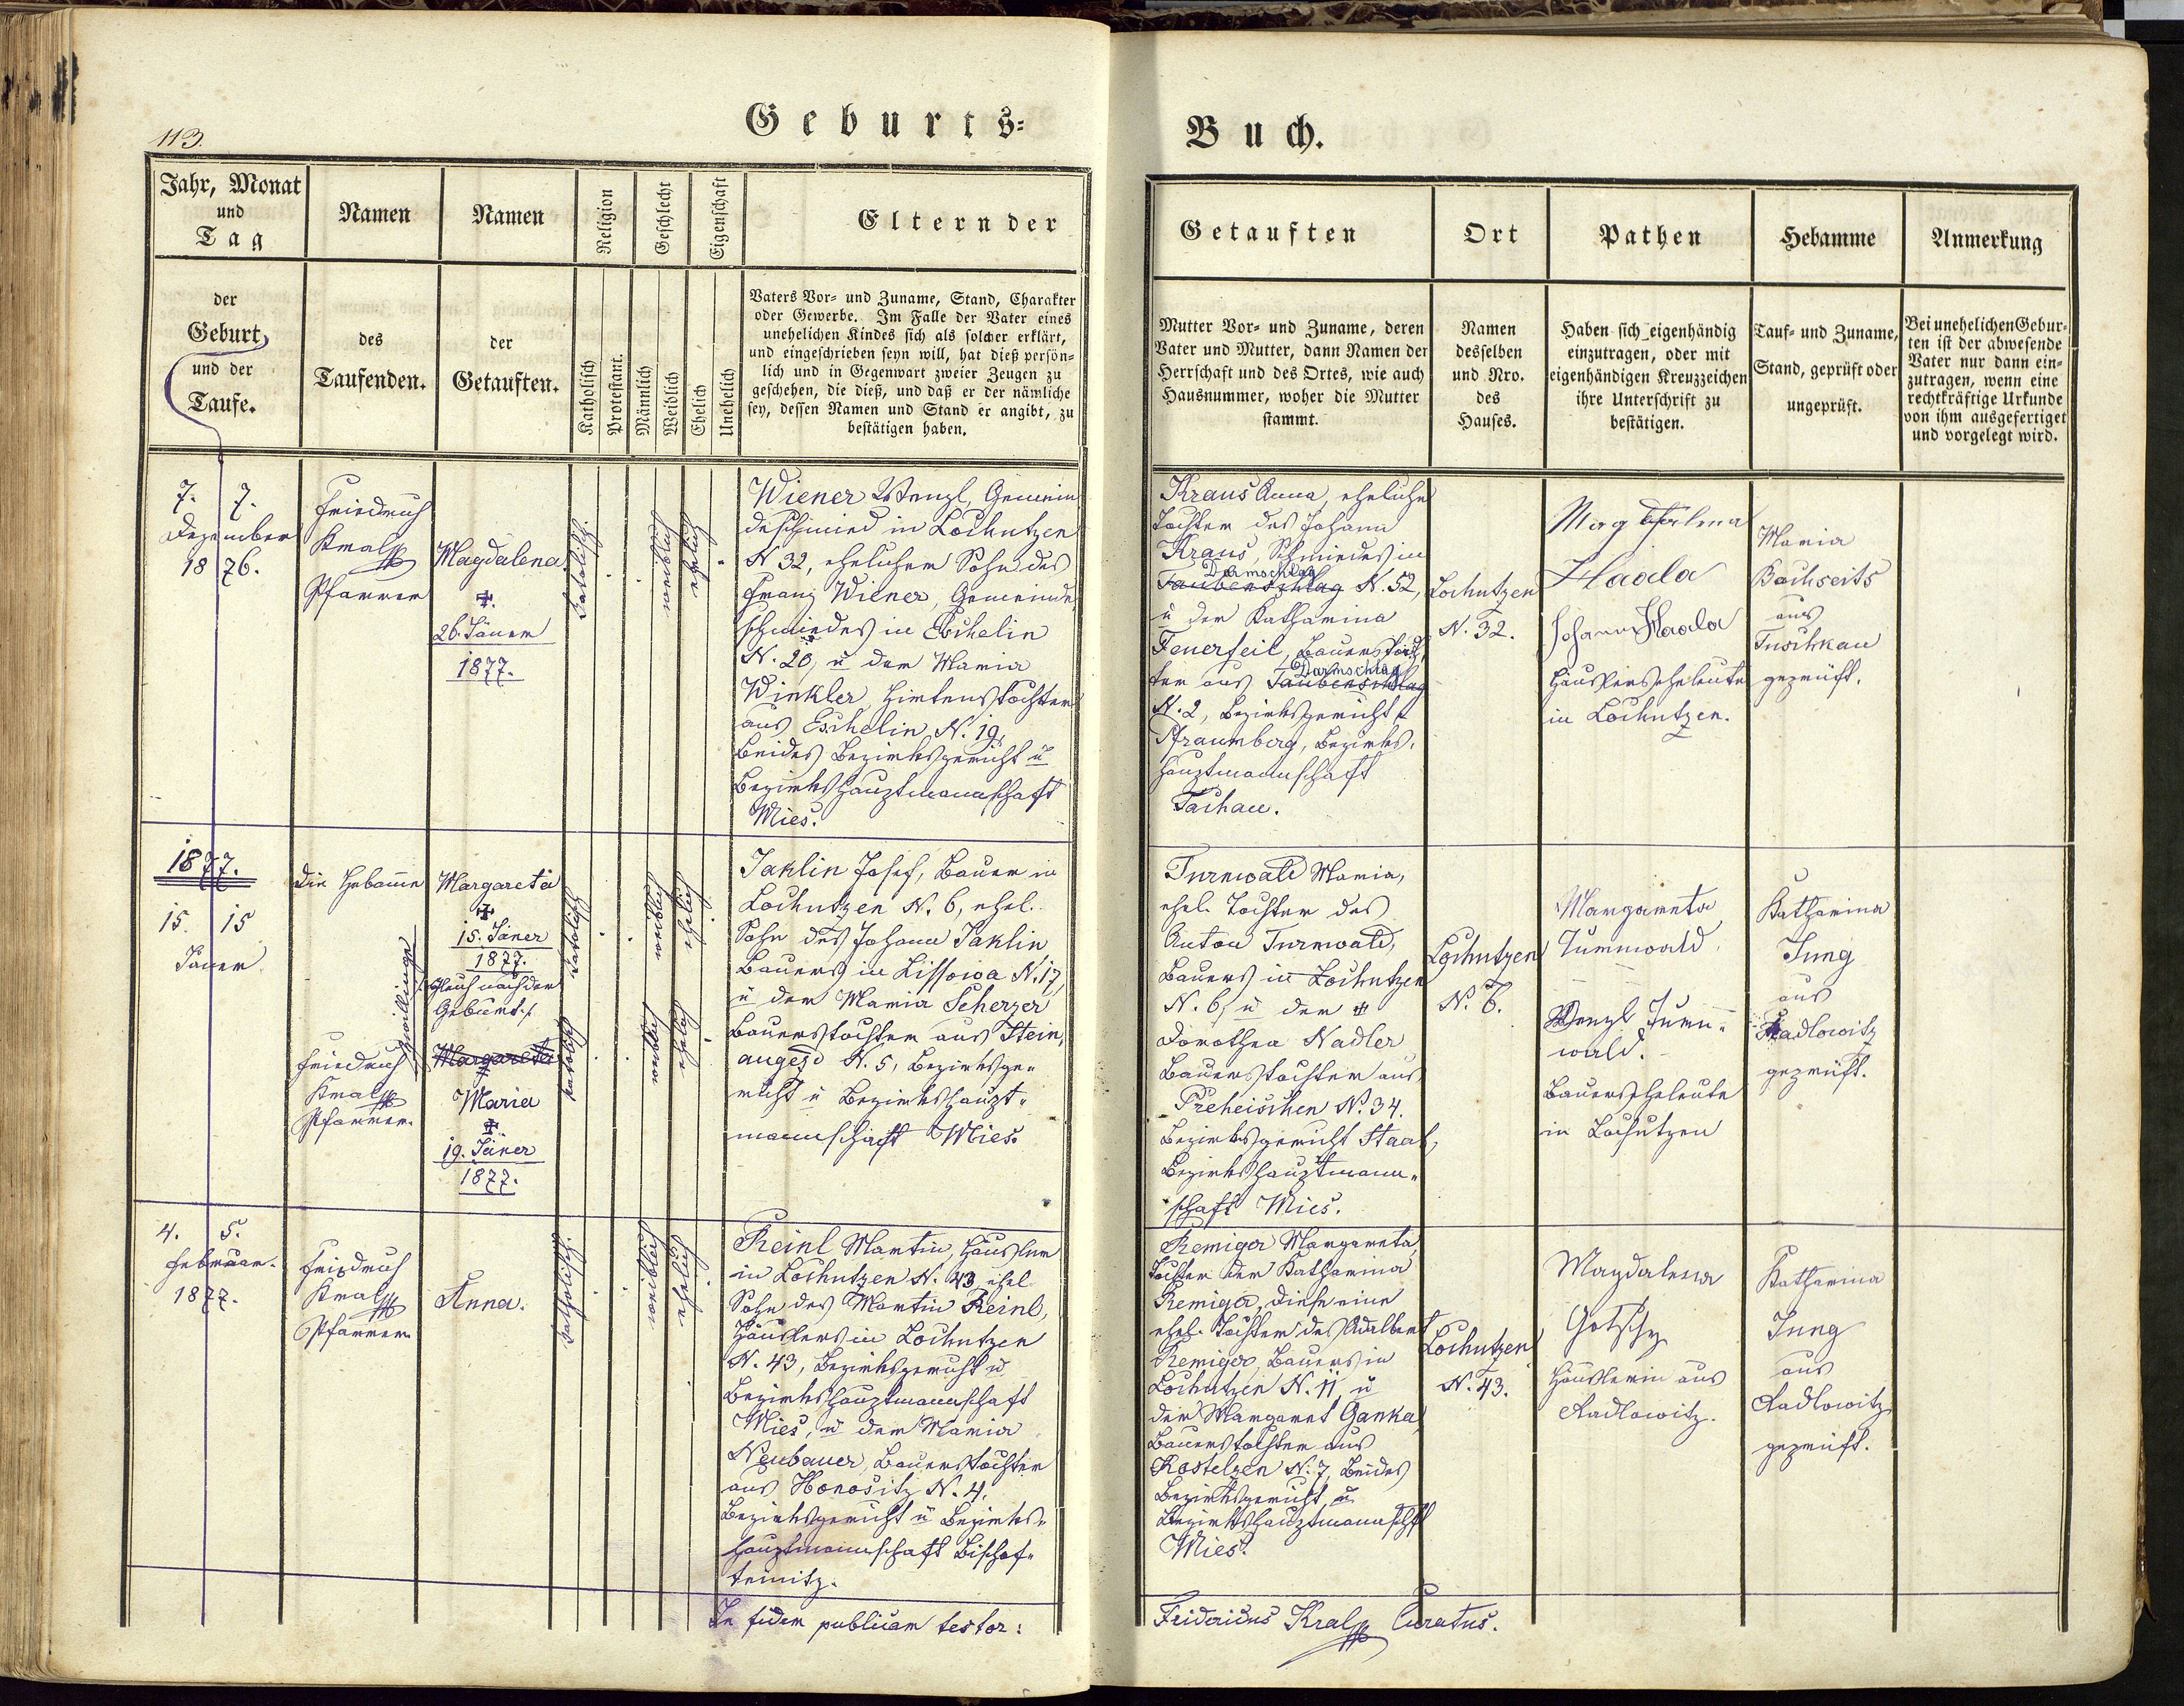 113.
Geburts=
Buch.
Jahr, Monat
und
Tag
Namen
Namen
Religion
Geschlecht
Eigenschaft
Eltern der
der
Geburt
und der
Taufe.
des
Taufenden.
der
Getauften.
Katholisch
Protestant.
Männlich
Weiblich
Ehelich
Unehelich
Vaters Vor= und Zuname, Stand, Charakter
oder Gewerbe. Im Falle der Vater eines
unehelichen Kindes sich als solcher erklärt,
und eingeschrieben seyn will, hat dieß persön-
lich und in Gegenwart zweier Zeugen zu
geschehen, die dieß, und daß er der nämliche
sey, dessen Namen und Stand er angibt, zu
bestätigen haben.
Getauften
Ort
Pathen
Hebamme
Anmerkung
Mutter Vor= und Zuname, deren
Vater und Mutter, dann Namen der
Herrschaft und des Ortes, wie auch
Hausnummer, woher die Mutter
stammt.
Namen
desselben
und Nro.
des
Hauses.
Haben sich eigenhändig
einzutragen, oder mit
eigenhändigen Kreuzzeichen
ihre Unterschrift zu
bestätigen.
Tauf= und Zuname,
Stand, geprüft oder
ungeprüft.
Bei unehelichen Gebur-
ten ist der abwesende
Vater nur dann ein-
zutragen, wenn eine
rechtkräftige Urkunde
von ihm ausgefertiget
und vorgelegt wird.
7. 7.
Dezember
1876.
Friedrich
Kral
Pfarrer
Magdalena
✝.
26. Jäner
1877.
katolisch.
weiblich
ehelich
Wiener Wenzl, Gemein
deschmied in Lochutzen
N 32, ehelicher Sohn des
Franz Wiener, Gemeinde
schmiedes in Eschelin
N. 20, u der Maria
Winkler Hirtenstochter
aus Eschelin, N. 19,
beides Bezirksgericht u
Bezirkshauptmannschaft
Mies.
Kraus Anna, eheliche
Tochter des Johann
Kraus, Schmiedes in
Darmschlag
Taubenschlag N. 52,
u der Katharina
Feuerfeil, Bauerstoch
Darmschlag
ter aus Taubenschlag
N. 2, Bezirksgericht
Pfraumberg, Bezirks-
hauptmannschaft
Tachau.
Lochutzen
N. 32.
Magdalena
Haala
Johann Haala
Häuslerseheleute
in Lochutzen.
Maria
Bachseits
aus
Tuschkau
geprüft.
1877.
15. 15
Jäner
Die Hebamme
Zwillinge
Margareta
✝
15. Jäner
1877.
gleich nach der
Geburt.
katolisch
weiblich
ehelich
Friedrich
Kral
Pfarrer.
Margareta
Maria
✝
19. Jäner
1877.
katolisch
weiblich
ehelich
Jaklin Josef, Bauer in
Lochutzen N. 6, ehel.
Sohn des Johann Jaklin
Bauers in Lissowa N. 17,
u der Maria Scherzer
Bauerstochter aus Stein,
augezd N. 5, Bezirksge-
richt u Bezirkshaupt-
mannschaft Mies.
Turnwald Maria,
ehel. Tochter des
Anton Turnwald,
Bauers in Lochutzen
N. 6, u der ✝
Dorothea Nadler
Bauerstochter aus
Preheischen N. 34.
Bezirksgericht Staab,
Bezirkshauptmann-
schaft Mies.
Lochutzen
N. 6.
Margareta
Turnwald
Wenzl Turn-
wald.
Bauerseheleute
in Lochutzen
Katharina
Jung
aus
Radlowitz
geprüft.
4. 5.
Februar.
1877.
Friedrich
Kral
Pfarrer
Anna.
katholisch.
weiblich
ehelich
Reinl Martin, Häusler
in Lochutzen N. 43, ehel.
Sohn des Martin Reinl,
Häuslers in Lochutzen
N. 43, Bezirksgericht u
Bezirkshauptmannschaft
Mies, u der Maria
Neubauer, Bauerstochter
aus Honositz N. 4,
Bezirksgericht u Bezirks-
hauptmannschaft Bischof-
teinitz.
Remiger Margareta
Tochter der Katharina
Remiger, diese eine
ehel. Tochter des Adalbert
Remiger, Bauers in
Lochutzen N. 11, u
der Margaret Ganka
Bauerstochter aus
Kostelzen N. 7, beides
Bezirksgericht u
Bezirkshauptmannschft
Mies.
Lochutzen
N. 43.
Magdalena
Gotschy
Häuslerin aus
Radlowitz.
Katharina
Jung
aus
Radlowitz
geprüft.
In fidem publicam testor:
Fridericus Kral Curatus.